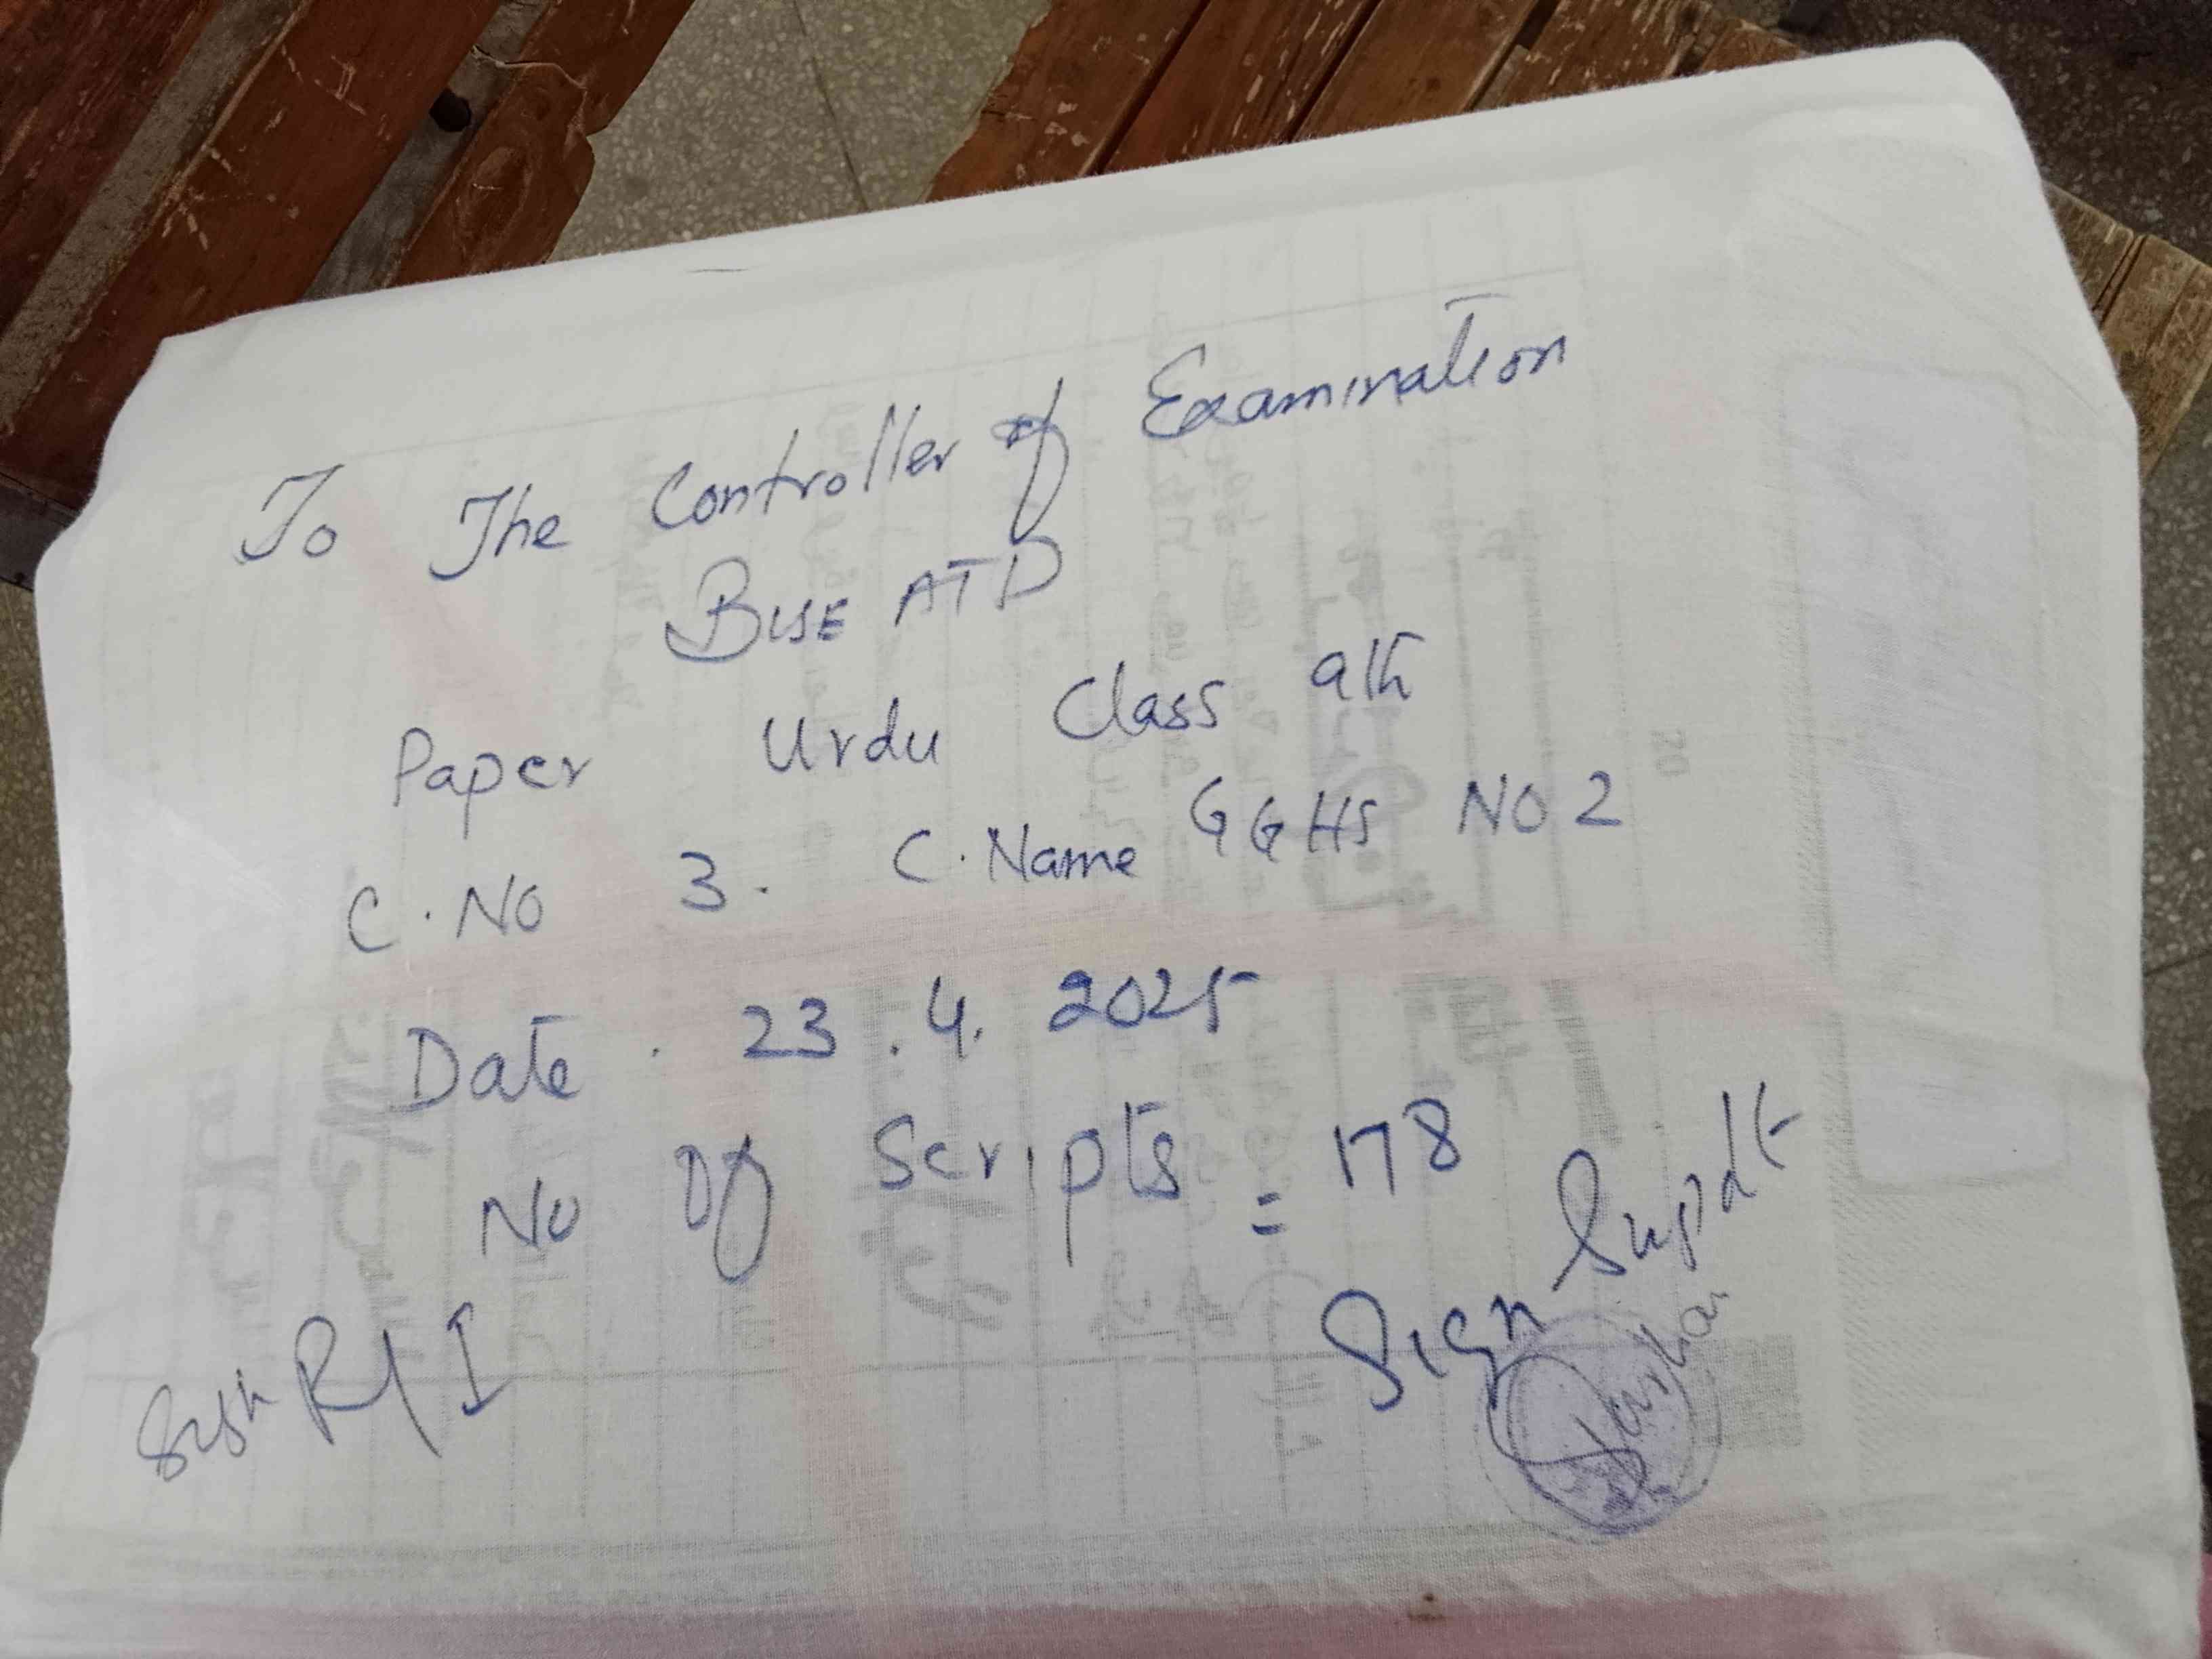 To The Controller of Examination
BISE ATD
Paper Urdu Class 9th
C.No 3. C.Name GGHS NO 2
Date . 23.4.2025
No Of Scripts = 178
Sign R/I
Sign Supdtt